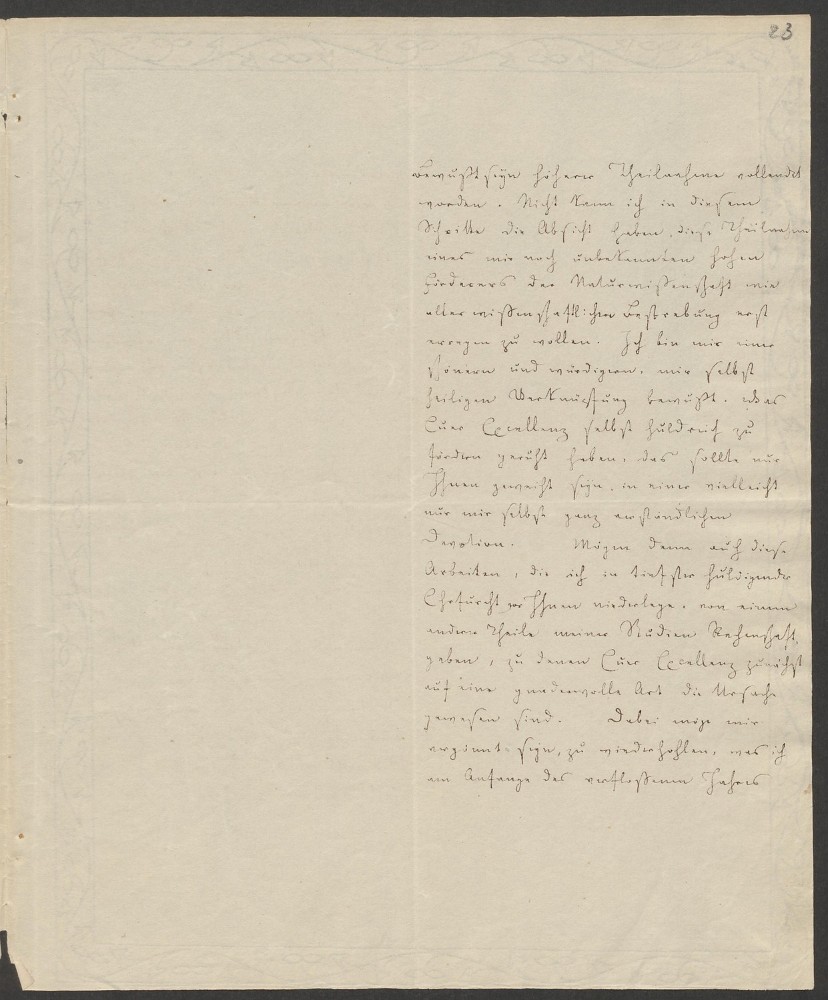 23
Bewußtseyn höherer Theilnahme vollendet
worden. Nicht kann ich in diesem
Schritte die Absicht haben, diese Theilnahme
eines mir noch unbekannten hohen
Förderers der Naturwissenschaft wie
aller wissenschaftlichen Bestrebung erst
erregen zu wollen. Ich bin mir einer
schönern und würdigern, mir selbst
heiligen Verknüpfung bewußt. Was
Euer Excellenz selbst huldreich zu
fördern geruht haben, das sollte nur
Ihnen geweiht seyn, in einer vielleicht
nur mir selbst ganz verständlichen
Devotion. Mögen denn auch diese
Arbeiten, die ich in tiefster huldigender
Ehrfurcht vor Ihnen niederlege, von einem
andern Theile meiner Studien Rechenschaft
geben, zu denen Euer Excellenz zunächst
auf eine gnadenvolle Art die Ursache
gewesen sind. Dabei möge mir
vergönnt seyn, zu wiederhohlen, was ich
am Anfange des verflossenen Jahres